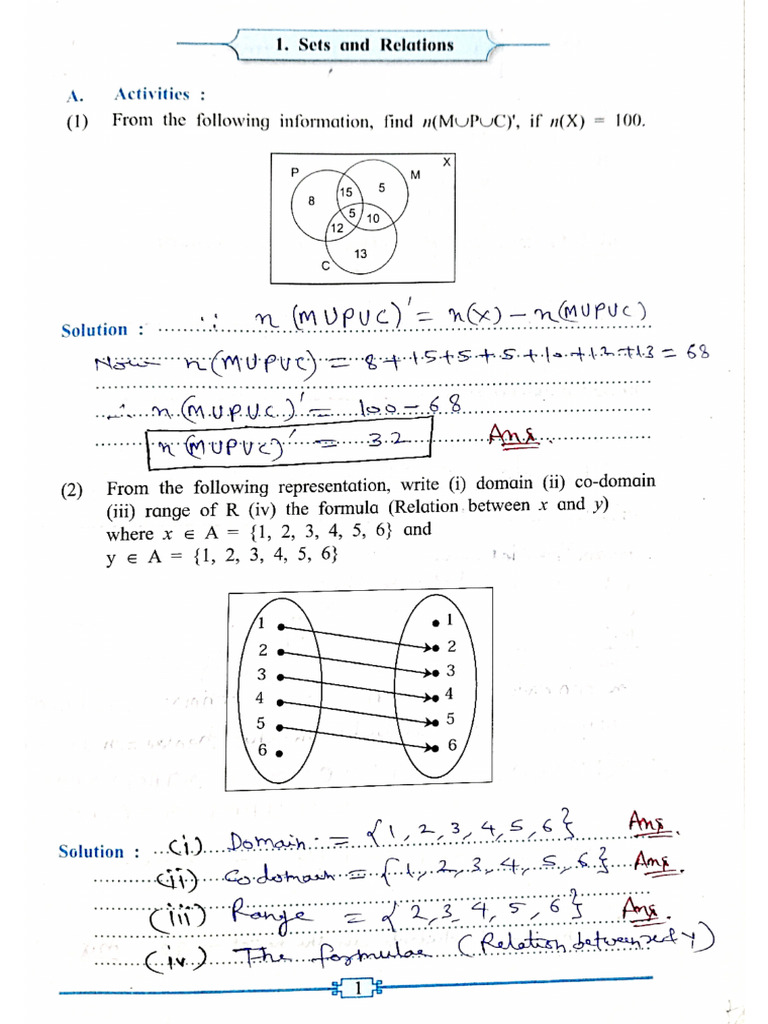 1. Sets and Relations
A. Activities :
(1) From the following information, find n(M∪P∪C)', if n(X) = 100.
X
P
M
15
5
8
5
10
12
13
C
Solution : ∴ n(M∪P∪C)' = n(X) – n(M∪P∪C)
Now n(M∪P∪C) = 8+15+5+5+10+12+13 = 68
∴ n(M∪P∪C)' = 100 – 68
n(M∪P∪C)' = 32 Ans.
(2) From the following representation, write (i) domain (ii) co-domain
(iii) range of R (iv) the formula (Relation between x and y)
where x ∈ A = {1, 2, 3, 4, 5, 6} and
y ∈ A = {1, 2, 3, 4, 5, 6}
1 1
2 2
3 3
4 4
5 5
6 6
Solution : (i) Domain = {1, 2, 3, 4, 5, 6} Ans.
(ii) Codomain = {1, 2, 3, 4, 5, 6} Ans.
(iii) Range = {2, 3, 4, 5, 6} Ans.
(iv) The formulae (Relation between x & y)
1